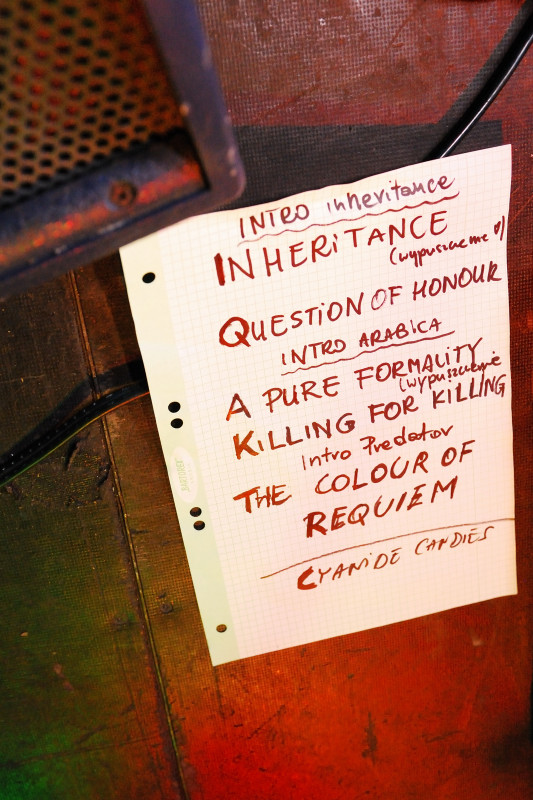 INTRO inheritance
INHERITANCE
QUESTION OF HONOUR
INTRO ARABICA
A PURE FORMALITY
KILLING FOR KILLING
Intro Predator
THE COLOUR OF
REQUIEM
CYANIDE CANDIES